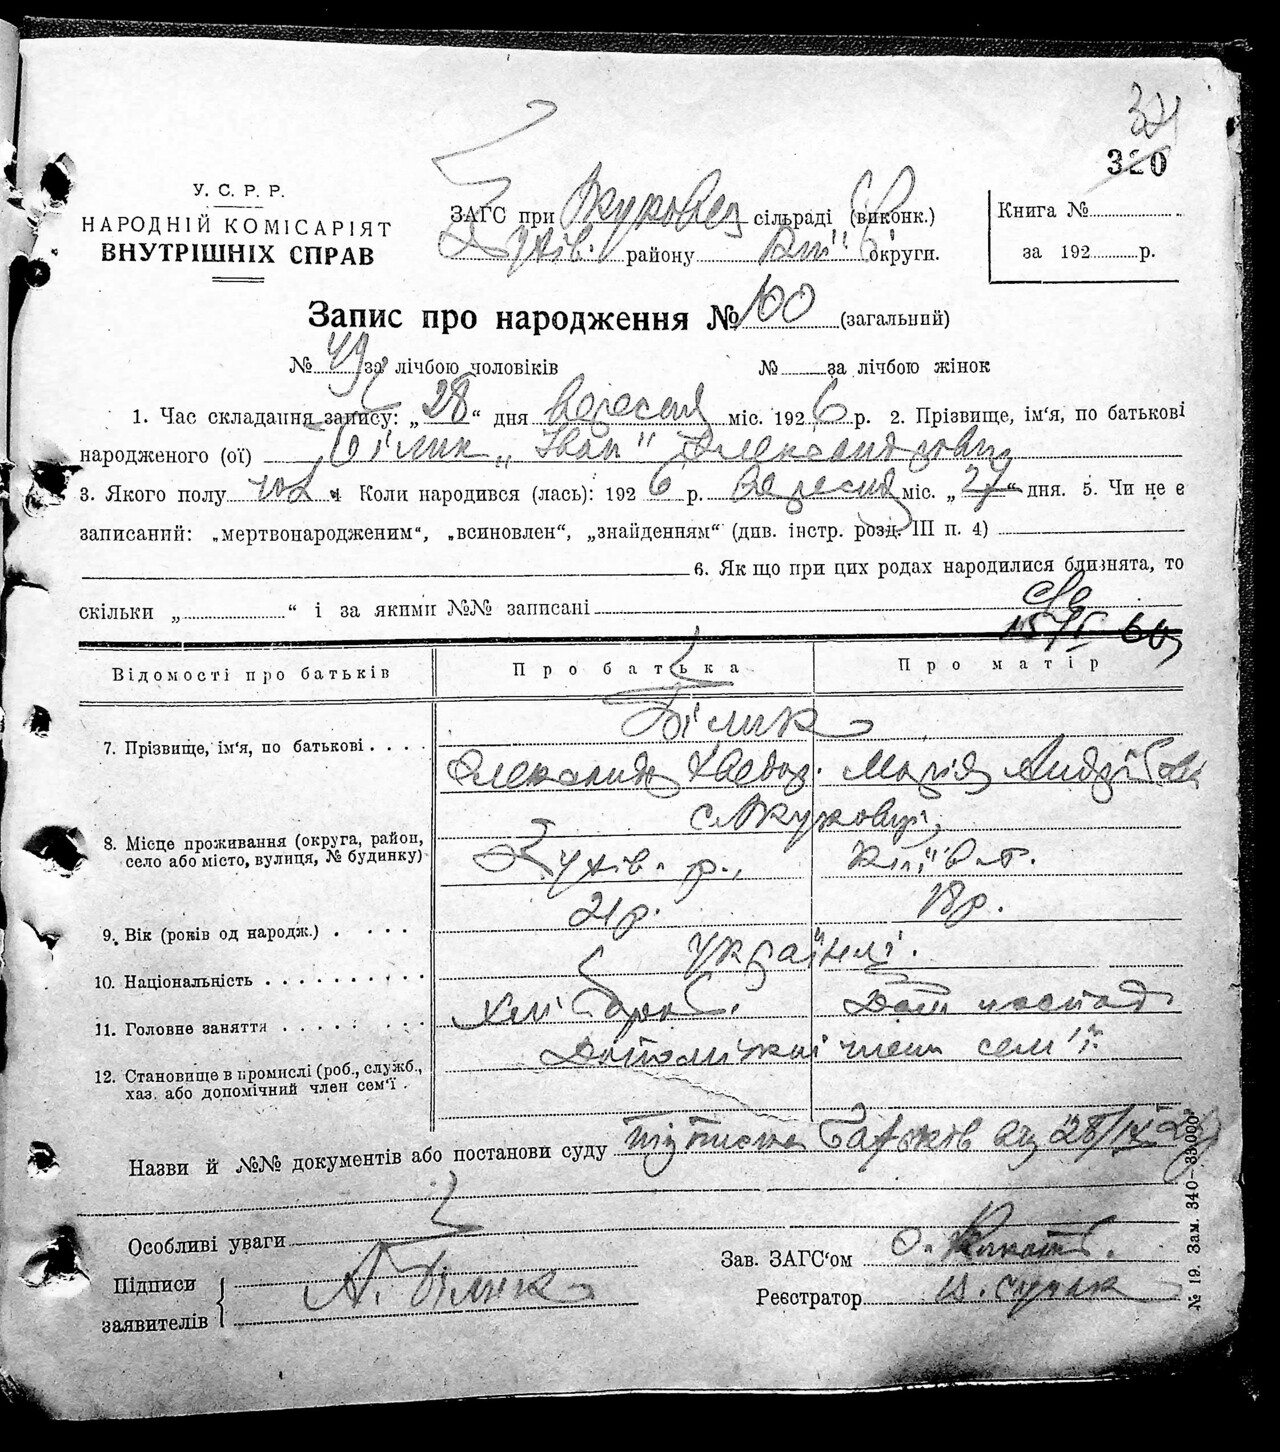 321
320
У. С. Р. Р.
НАРОДНІЙ КОМІСАРІЯТ
ВНУТРІШНІХ СПРАВ
ЗАГС при Жуковец сільраді (виконк.)
району Київ округи.
Книга №
за 192 р.
Запис про народження № 100 (загальний)
№ 49 за лічбою чоловіків № за лічбою жінок
1. Час складання запису: „28“ дня Вересня міс. 1926 р. 2. Прізвище, ім‘я, по батькові
народженого (ої) Білик „Іван“ Олександрович
3. Якого полу чол. 4 Коли народився (лась): 1926 р. Вересня міс. „27“ дня. 5. Чи не є
записаний: „мертвонародженим“, „всиновлен“, „знайденням“ (див. інстр. розд. III п. 4)
6. Як що при цих родах народилися близнята, то
скільки „ “ і за якими №№ записані
Відомості про батьків Про батька Про матір
Білик
7. Прізвище, ім‘я, по батькові
Олександр Хведор. Марія Андріївна
с. Жуковці,
8. Місце проживання (округа, район,
село або місто, вулиця, № будинку)
р., Київ
21 р. 18 р.
9. Вік (років од народж.)
Українці.
10. Національність
Хлібороб. Дом. господ
11. Головне заняття
Допоміжні члени сем‘ї.
12. Становище в промислі (роб., служб.,
хаз. або допомічний член сем‘ї .
Назви й №№ документів або постанови суду підписка батьків від 28/IX 26
Особливі уваги
Підписи
заявителів
А. Білик
Зав. ЗАГС‘ом
Реєстратор
№ 19. Зам. 340—33.000